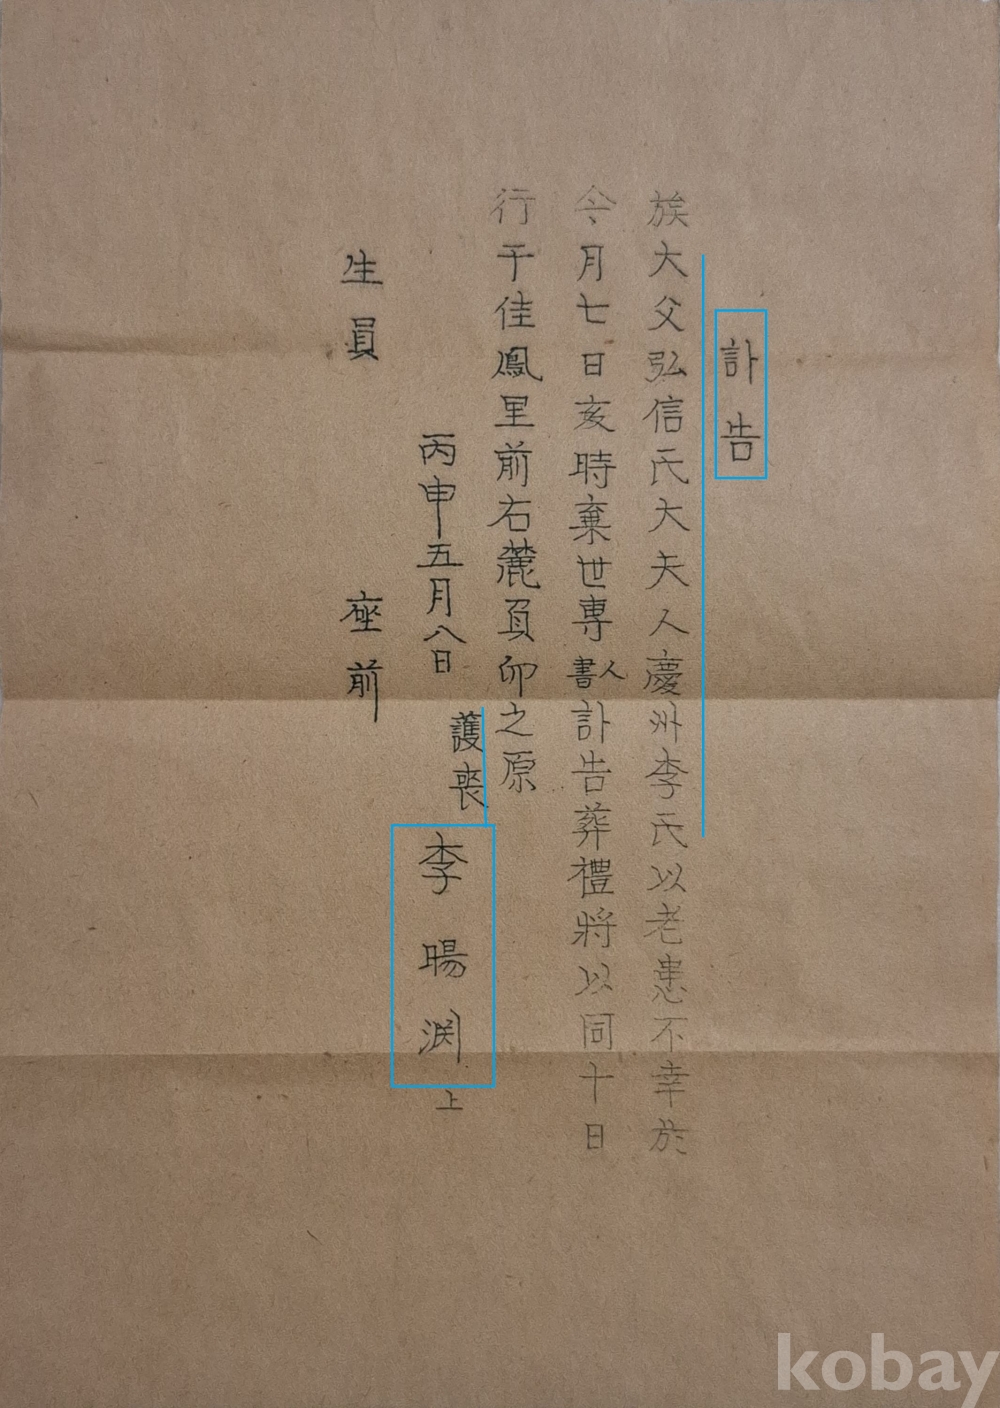 訃告
族大父弘信氏大夫人慶州李氏以老患不幸於
今月七日亥時棄世專人書訃告葬禮將以同十日
行于佳鳳里前右麓負卯之原
丙申五月八日
護喪 李暘淵 上
生員 座前
kobay